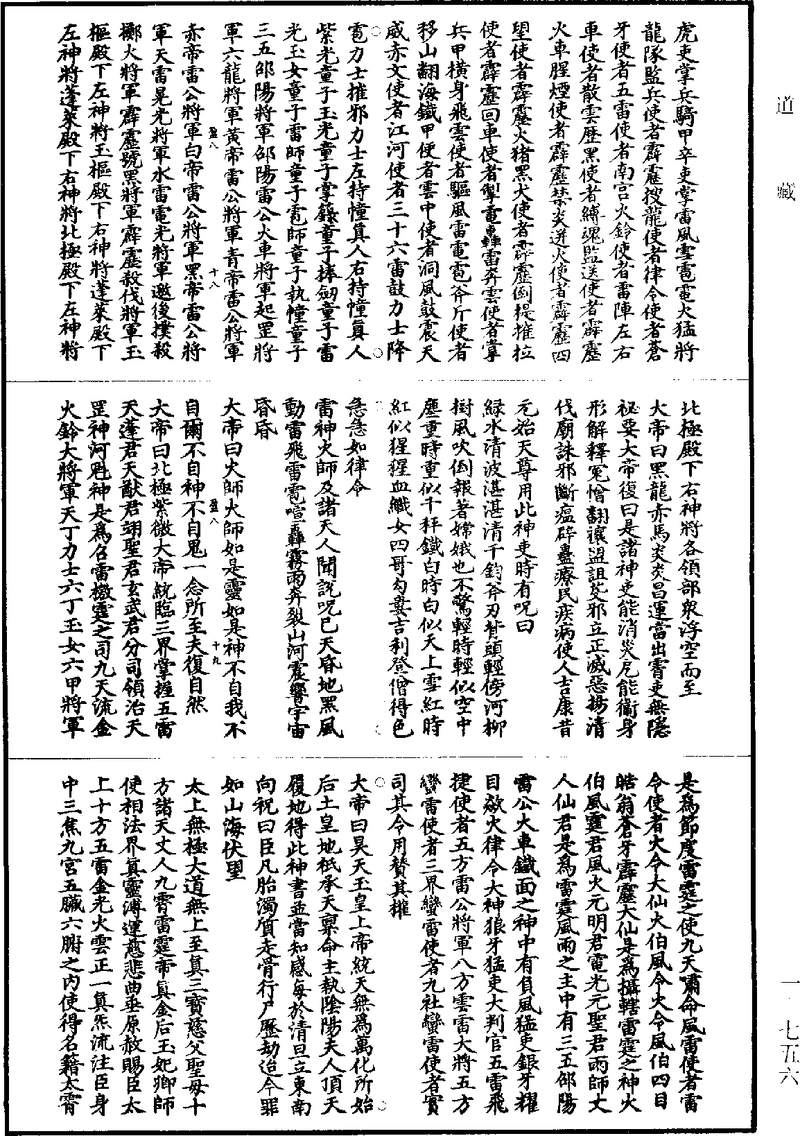 道藏
虎吏掌兵騎甲卒吏掌雷風雪雹電火猛將
龍隊監兵使者霹靂搜龍使者律令使者蒼
牙使者五雷使者南宮火鈴使者雷陣左右
車使者散雲歷黑使者縛魂監送使者霹靂
火車腥煙使者霹靂禁炎迸火使者霹靂四
望使者霹靂火猪黑犬使者霹靂倒提摧拉
使者霹靂回車使者掣電轟雷奔雲使者掌
兵甲橫身飛雲使者驅風雷電雹斧斤使者
移山翻海鐵甲使者雲中使者洞風鼓震天
威赤文使者江河使者三十六雷鼓力士降
雹力士摧邪力士左持幢真人右持幢真人
紫光童子玉光童子掌錄童子捧劒童子雷
光玉女童子雷師童子雹師童子執幢童子
三五邵陽將軍邵陽雷公火車將軍起罡將
軍六龍將軍黃帝雷公將軍青帝雷公將軍
盈八 十八
赤帝雷公將軍白帝雷公將軍黑帝雷公將
軍天雷晃光將軍水雷電光將軍邀後撲殺
擲火將軍霹靂號黑將軍霹靂殺伐將軍玉
樞殿下左神將玉樞殿下右神將蓬萊殿下
左神將蓬萊殿下右神將北極殿下左神將
北極殿下右神將各領部衆浮空而至
大帝曰黑龍赤馬炎炎昌運當出霄吏無隱
祕要大帝復曰是諸神吏能消災厄能衛身
形解釋冤憎翻禳盟詛茇邪立正滅惡揚清
伐廟誅邪斷瘟碎蠱療民疾病使人吉康昔
元始天尊用此神吏時有呪曰
綠水清波湛湛清千鈞斧刃骨頭輕傍河柳
樹風吹倒報著嫦娥也不驚輕時輕似空中
塵重時重似千秤鐵白時白似天上雪紅時
紅似猩猩血纖女四哥勾婁吉利登僧得色
急急如律令
雷神火師及諸天人聞說呪已天昏地黑風
動雷飛雷雹喧轟霧雨奔裂山河震響宇宙
昏昏
大帝曰火師火師如是靈如是神不自我不
盈八 十九
自爾不自神不自鬼一念所至夫復自然
大帝曰北極紫微大帝統臨三界掌握五雷
天蓬君天猷君翊聖君玄武君分司領治天
罡神河魁神是為召雷檄霆之司九天流金
火鈴大將軍天丁力士六丁玉女六甲將軍
是為節度雷霆之使九天嘯命風雷使者雷
令使者火令大仙火伯風令火令風伯四目
皓翁蒼牙霹靂大仙是為攝轄雷霆之神火
伯風霆君風火元明君電光元聖君雨師丈
人仙君是為雷霆風雨之主中有三五邵陽
雷公火車鐵面之神中有負風猛吏銀牙耀
目欻火律令大神狼牙猛吏大判官五雷飛
捷使者五方雷公將軍八方雲雷大將五方
蠻雷使者三界蠻雷使者九社蠻雷使者實
司其令用贊其權
大帝曰昊天玉皇上帝統天無為萬化所始
后土皇地祇承天稟命主執陰陽夫人頂天
履地得此神書並當知感每於清旦立東南
向祝曰臣凡胎濁質走骨行尸歷劫迨今罪
如山海伏望
太上無極大道無上至真三寶慈父聖母十
方諸天丈人九霄雷霆帝真金后玉妃卿師
使相法界真靈溥運慈悲曲垂原赦賜臣太
上十方五雷金光火雲正一真炁流注臣身
中三焦九宮五臟六腑之內使得名籍太霄
一·七五六